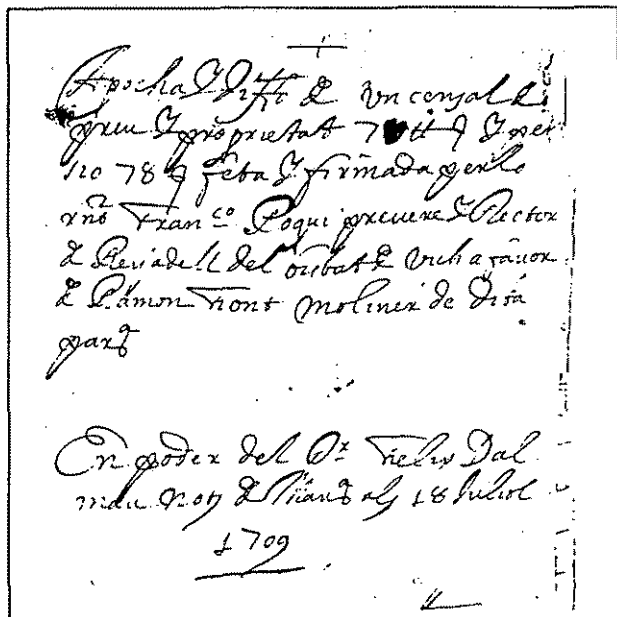 Apocha y diffi de un censal de
preu y proprietat 7 ## y pen
sio 78 feta y firmada per lo
rnt Franco Roqui prevere y Rector
de Reiadell del bisbat de Vich a favor
de Ramon Font moliner de dita
parq
En poder del Dr Felip Dal
mau Noty de als 18 Juliol
1709